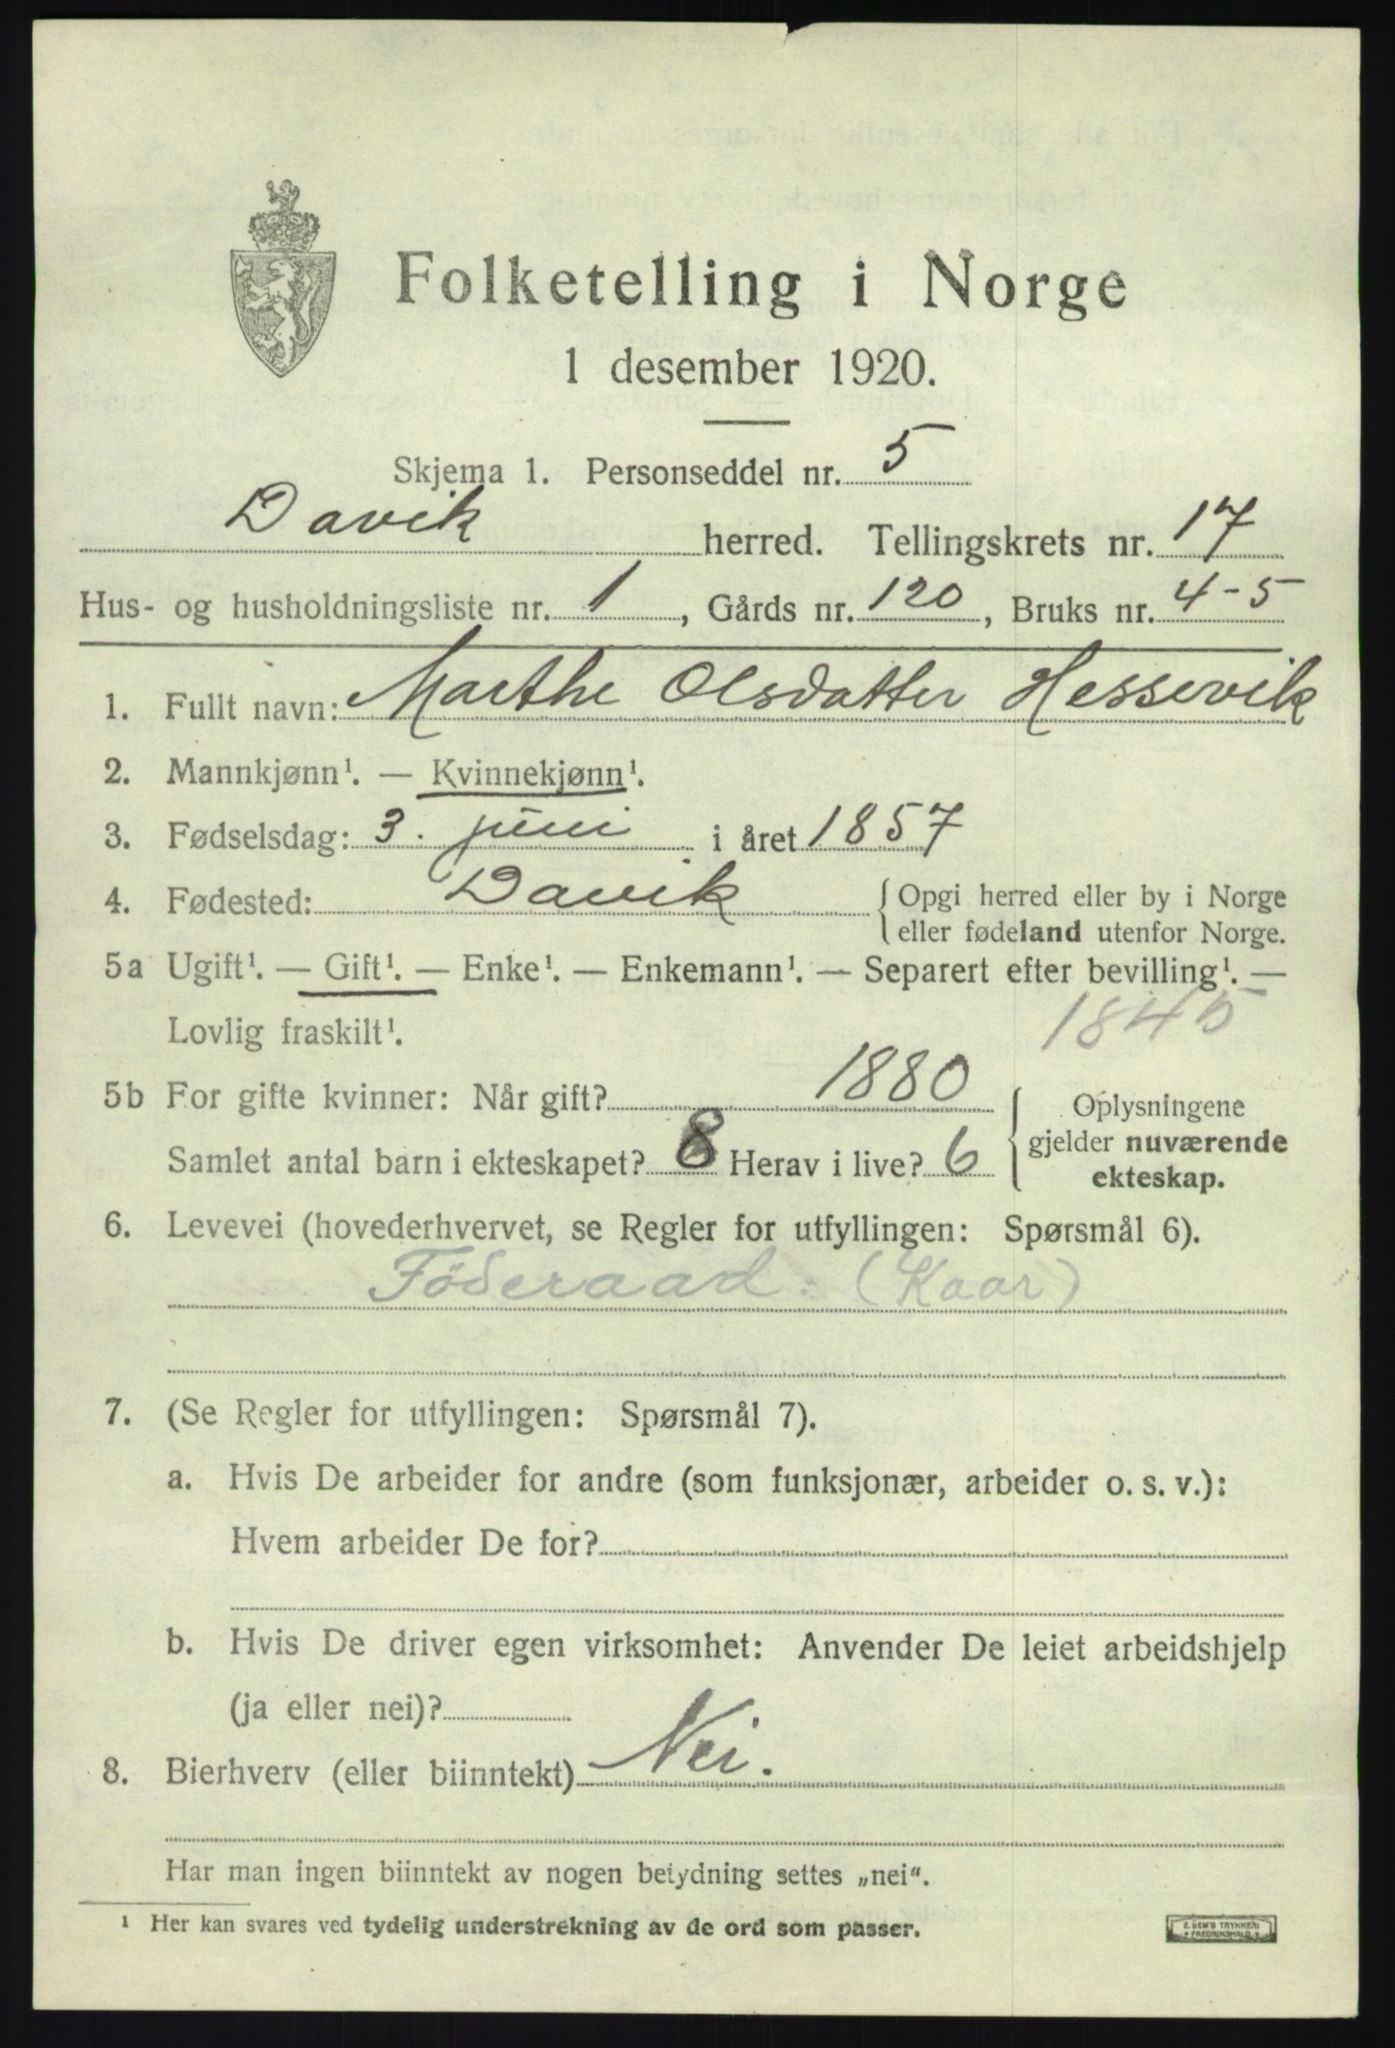 Folketelling i Norge
1 desember 1920.
Skjema 1. Personseddel nr. 5
Davik herred. Tellingskrets nr. 17
Hus- og husholdningsliste nr. 1, Gårds nr. 120, Bruks nr. 4-5
1. Fullt navn: Marthe Olsdatter Hessevik
2. Mannkjønn¹. — Kvinnekjønn¹.
3. Fødselsdag: 3. juni i året 1857
4. Fødested: Davik { Opgi herred eller by i Norge
eller fødeland utenfor Norge.
5a Ugift¹. — Gift¹. — Enke¹. — Enkemann¹. — Separert efter bevilling¹. —
Lovlig fraskilt¹. 1845
5b For gifte kvinner: Når gift? 1880
Samlet antal barn i ekteskapet? 8 Herav i live? 6
Oplysningene
gjelder nuværende
ekteskap.
6. Levevei (hovederhvervet, se Regler for utfyllingen: Spørsmål 6).
Föderaad. (Kaar)
7. (Se Regler for utfyllingen: Spørsmål 7).
a. Hvis De arbeider for andre (som funksjonær, arbeider o. s. v.):
Hvem arbeider De for?
b. Hvis De driver egen virksomhet: Anvender De leiet arbeidshjelp
(ja eller nei)?
8. Bierhverv (eller biinntekt) Nei.
Har man ingen biinntekt av nogen betydning settes „nei".
¹ Her kan svares ved tydelig understrekning av de ord som passer.
E. SEM'S TRYKKERI
FREDRIKSHALD